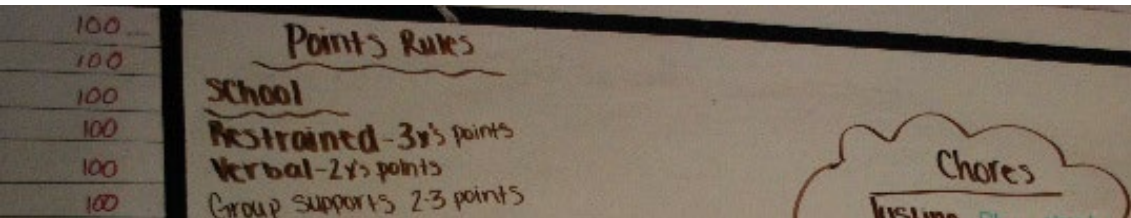 100
100
100
100
100
100
Points Rules
School
Restrained-3x's points
Verbal-2x's points
Group supports 2-3 points
Chores